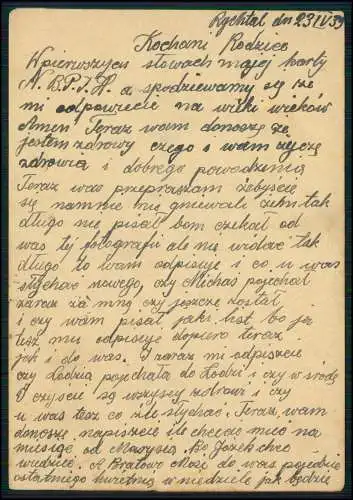 Rychtal dn 23 IV 39
Kochani Rodzice
W pierwszych słowach mojej karty
N.B.P.J.H. a spodziewamy się że
mi odpowiecie na wilki wieków
Amen. Teraz wam donoszę że
jestem zdrowy czego i wam życzę
zdrowia i dobrego powodzenia
Teraz was przepraszam żebyście
się na mnie nie gniewali żem tak
długo nie pisał bom czekał od
was tej fotografii ale nie widać tak
długo to wam odpisuje i co u was
słychać nowego, czy Michaś pojechał
zaraz za mną czy jeszcze został
i czy wam pisał jaki list bo ja
tusz mu odpisuje dopiero teraz
jak i do was. I zaraz mi odpiszcie
czy Ladzia pojechała do Łodzi i czy w środę
i czyście są wszyscy zdrowi i czy
u was też co źle słychać. Teraz wam
donoszę napiszcie ile chcecie mieć na
miesiąc od Marysia Bo Józek chce
wiedzieć. A Bratowo Może do was pojedzie
ostatniego kwietnia w niedziele jak będzie